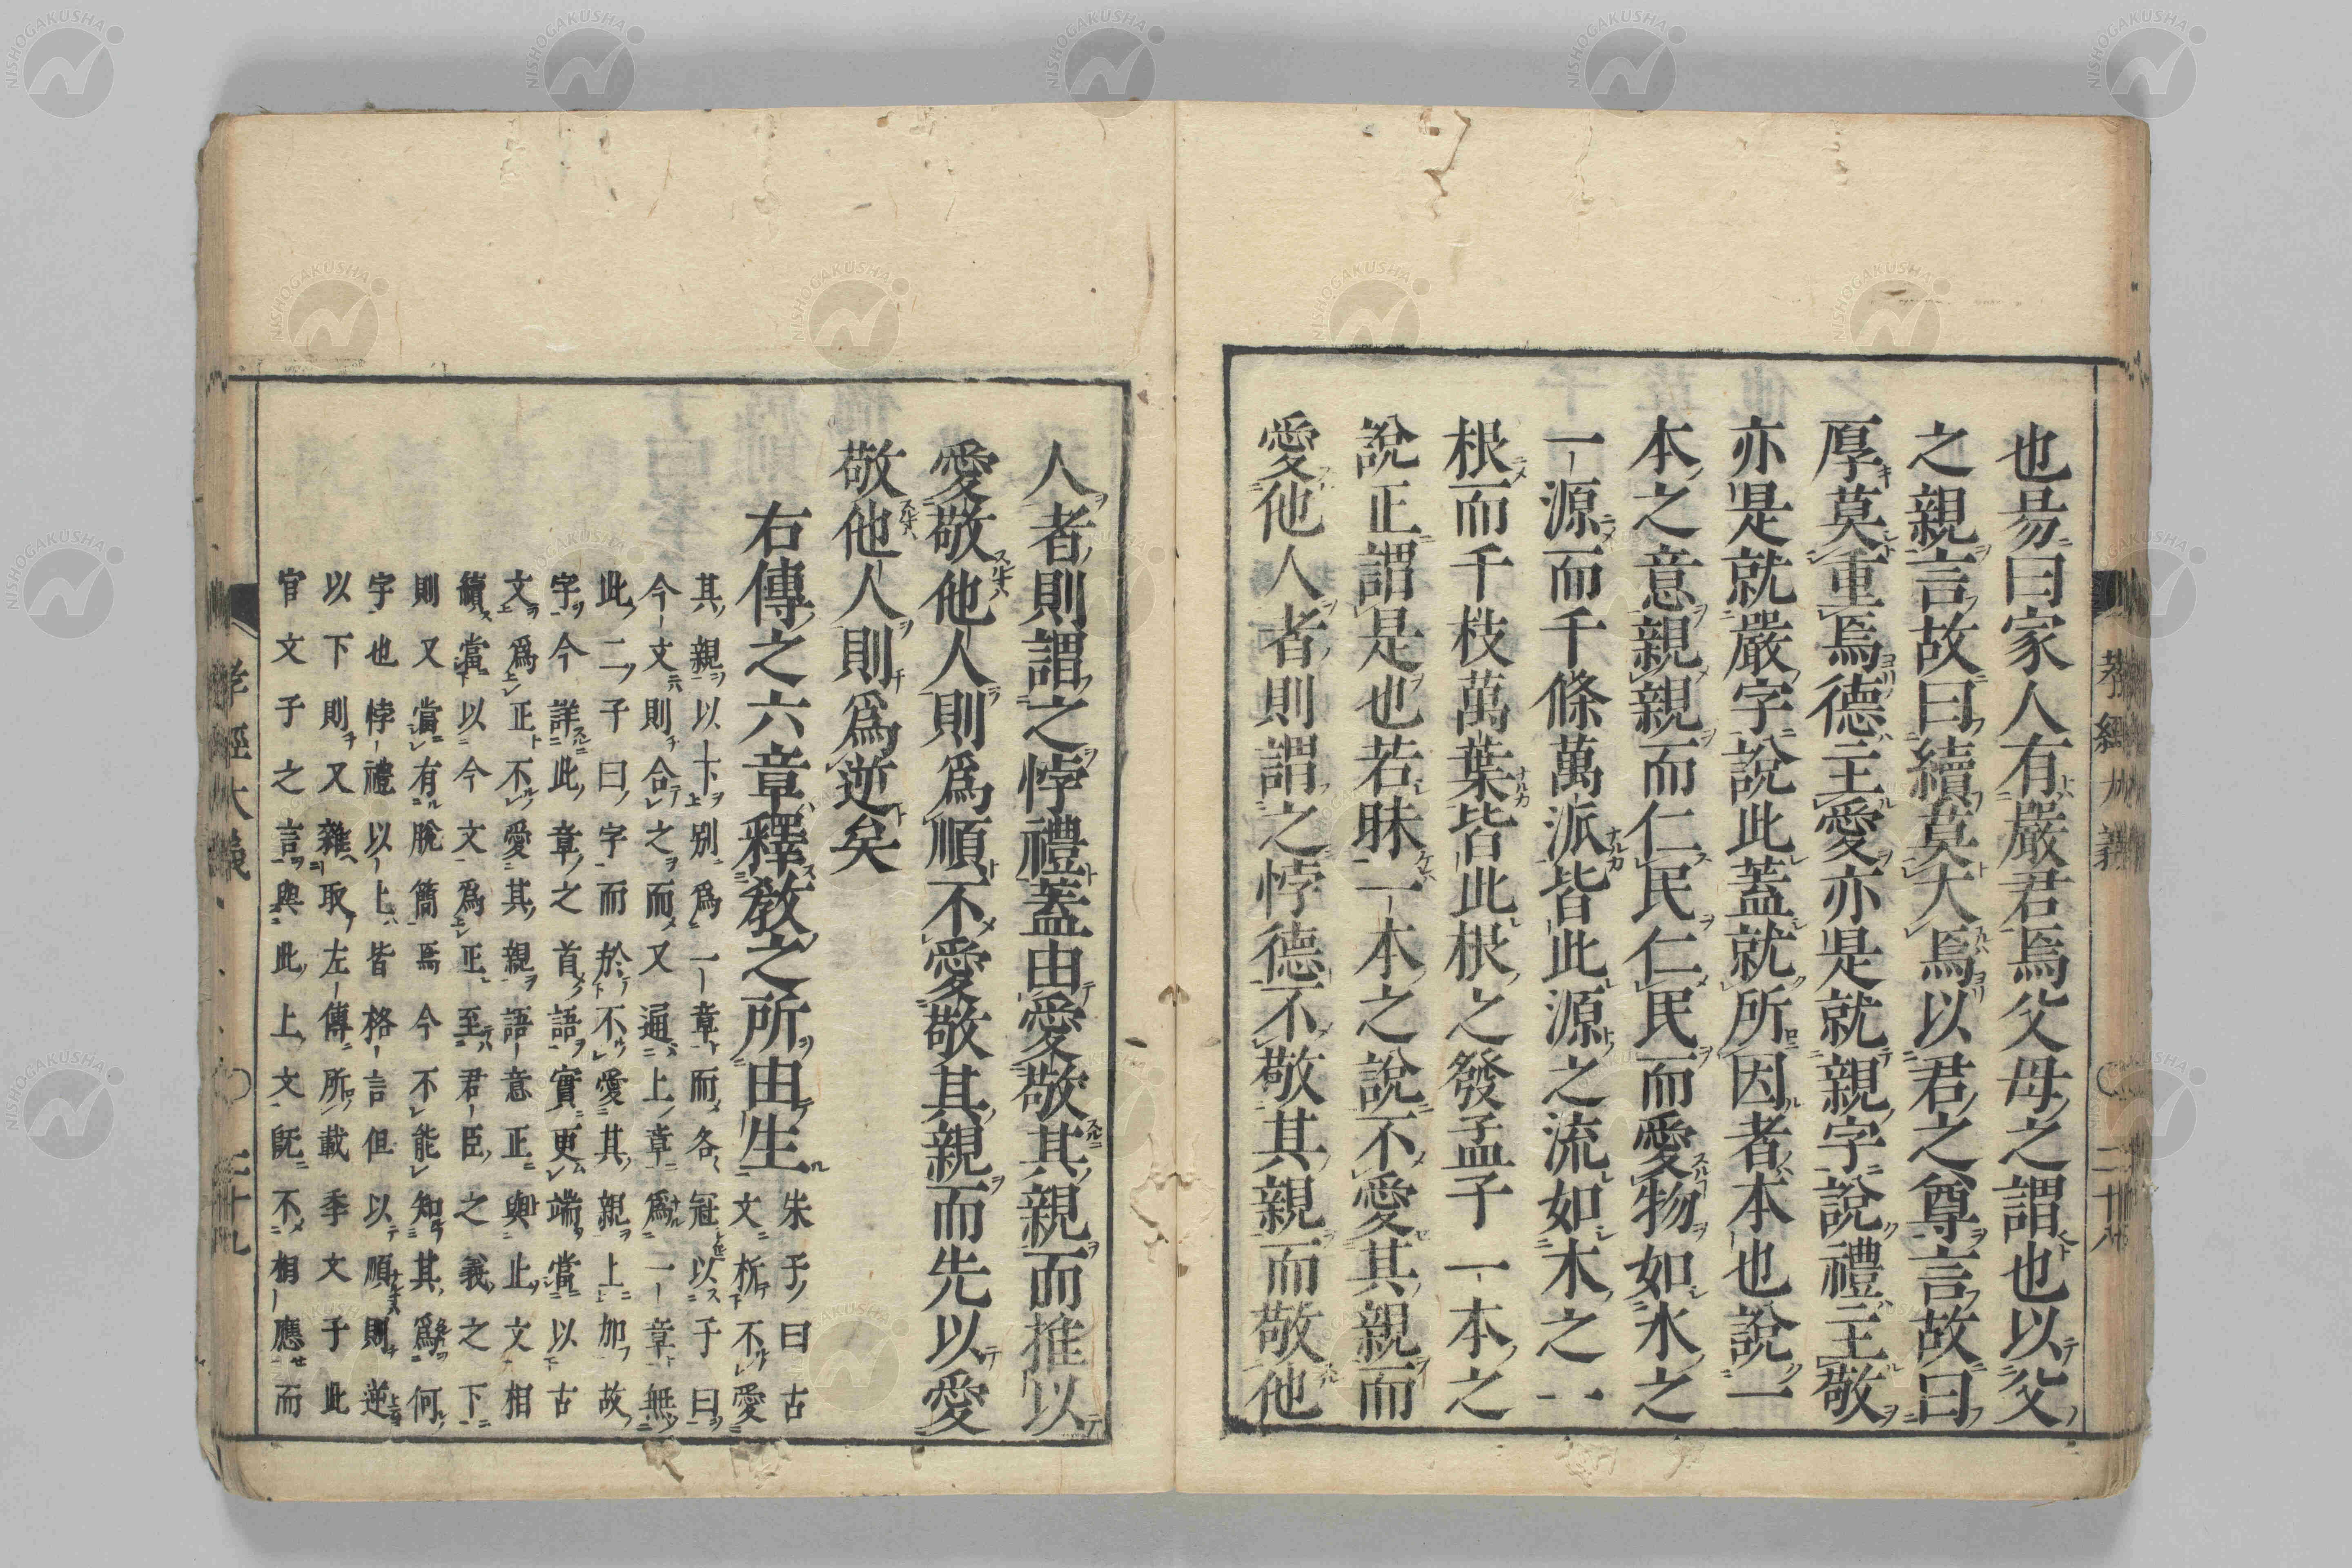 也昜曰家人有嚴君焉父母之謂也以父
之親言故曰續莫大焉以君之尊言故曰
厚莫重焉德主愛亦是就親字說禮主敬
亦是就嚴字說此蓋就所因者本也說一
本之意親親而仁民仁民而愛物如水之
一源而千條萬派皆此源之流如木之一
根而千枝萬葉皆此根之發孟子一本之
說正謂是也若昧一本之說不愛其親而
愛他人者則謂之悖德不敬其親而敬他
人者則謂之悖禮蓋由愛敬其親而推以
愛敬他人則爲順不愛敬其親而先以愛
敬他人則爲逆矣
右傳之六章釋敎之所由生
朱子曰古
文析不愛
其親以下別爲一章而各冠以子曰
今文則合之而又通上章爲一章無
此二子曰字而於不愛其親上加故
字今詳此章之首語實更端當以古
文爲正不愛其親語意正與上文相
續當以今文爲正至君臣之義之下
則又當有脫簡焉今不能知其爲何
字也悖禮以上皆格言但以順則逆
以下則又雜取左傳所載季文子此
官文子之言與此上文旣不相應而
孝經大義
二十八
孝經大義
二十九
NISHOGAKUSHA